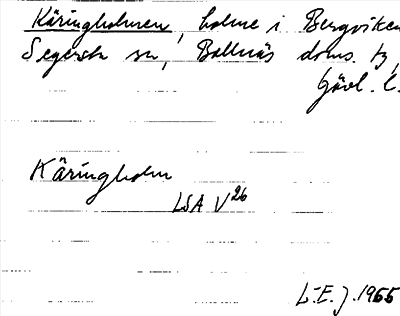 Käringholmen, holme i Bergviken
Segersta sn, Bollnäs doms. tg,
Gävl. l.
Käringholm
LSA V 26
L.E.J. 1955